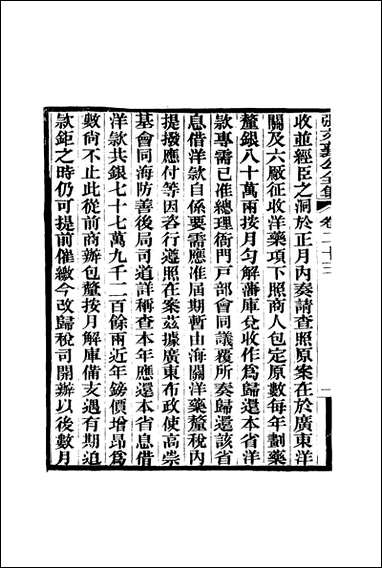 張文襄公全集 卷二十三 一
收並經臣之洞於正月內奏請查照原案在於廣東洋
關及六厰征收洋藥項下照商人包定原數每年劃藥
釐銀八十萬兩按月勻解藩庫兌收作爲歸還本省洋
款專需已准總理衙門戸部會同議覆所奏歸還該省
息借洋款自係要需應准屆期暫由海關洋藥釐稅內
提撥應付等因咨行遵照在案茲據廣東布政使高崇
基會同海防善後局司道詳稱查本年應還本省息借
洋款共銀七十七萬九千二百餘兩近年鎊價增昂爲
數尙不止此從前商辦包釐按月解庫備支遇有期迫
款鉅之時仍可提前催繳今改歸稅司開辦以後數月